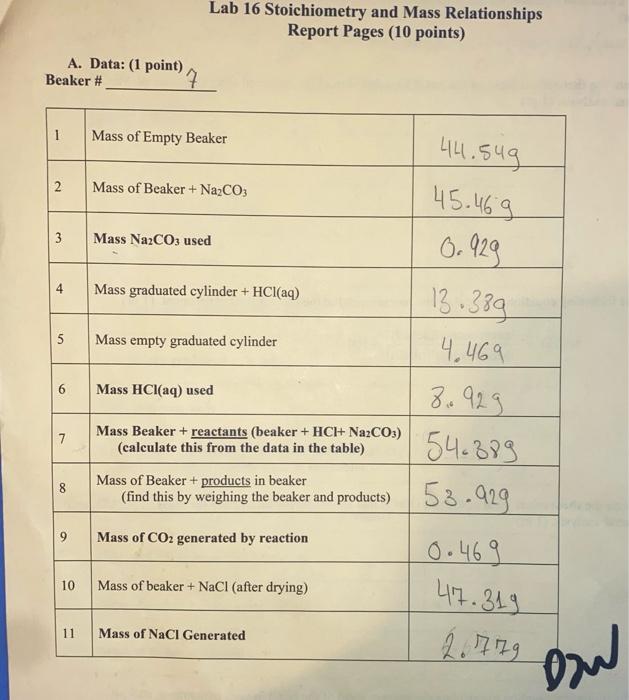 Lab 16 Stoichiometry and Mass Relationships
Report Pages (10 points)
A. Data: (1 point)
Beaker # 7
1 Mass of Empty Beaker 44.54g
2 Mass of Beaker + Na₂CO₃ 45.46g
3 Mass Na₂CO₃ used 0.92g
4 Mass graduated cylinder + HCl(aq) 13.38g
5 Mass empty graduated cylinder 4.46g
6 Mass HCl(aq) used 8.92g
7 Mass Beaker + reactants (beaker + HCl+ Na₂CO₃)
(calculate this from the data in the table) 54.38g
8 Mass of Beaker + products in beaker
(find this by weighing the beaker and products) 53.92g
9 Mass of CO₂ generated by reaction 0.46g
10 Mass of beaker + NaCl (after drying) 47.31g
11 Mass of NaCl Generated 2.77g